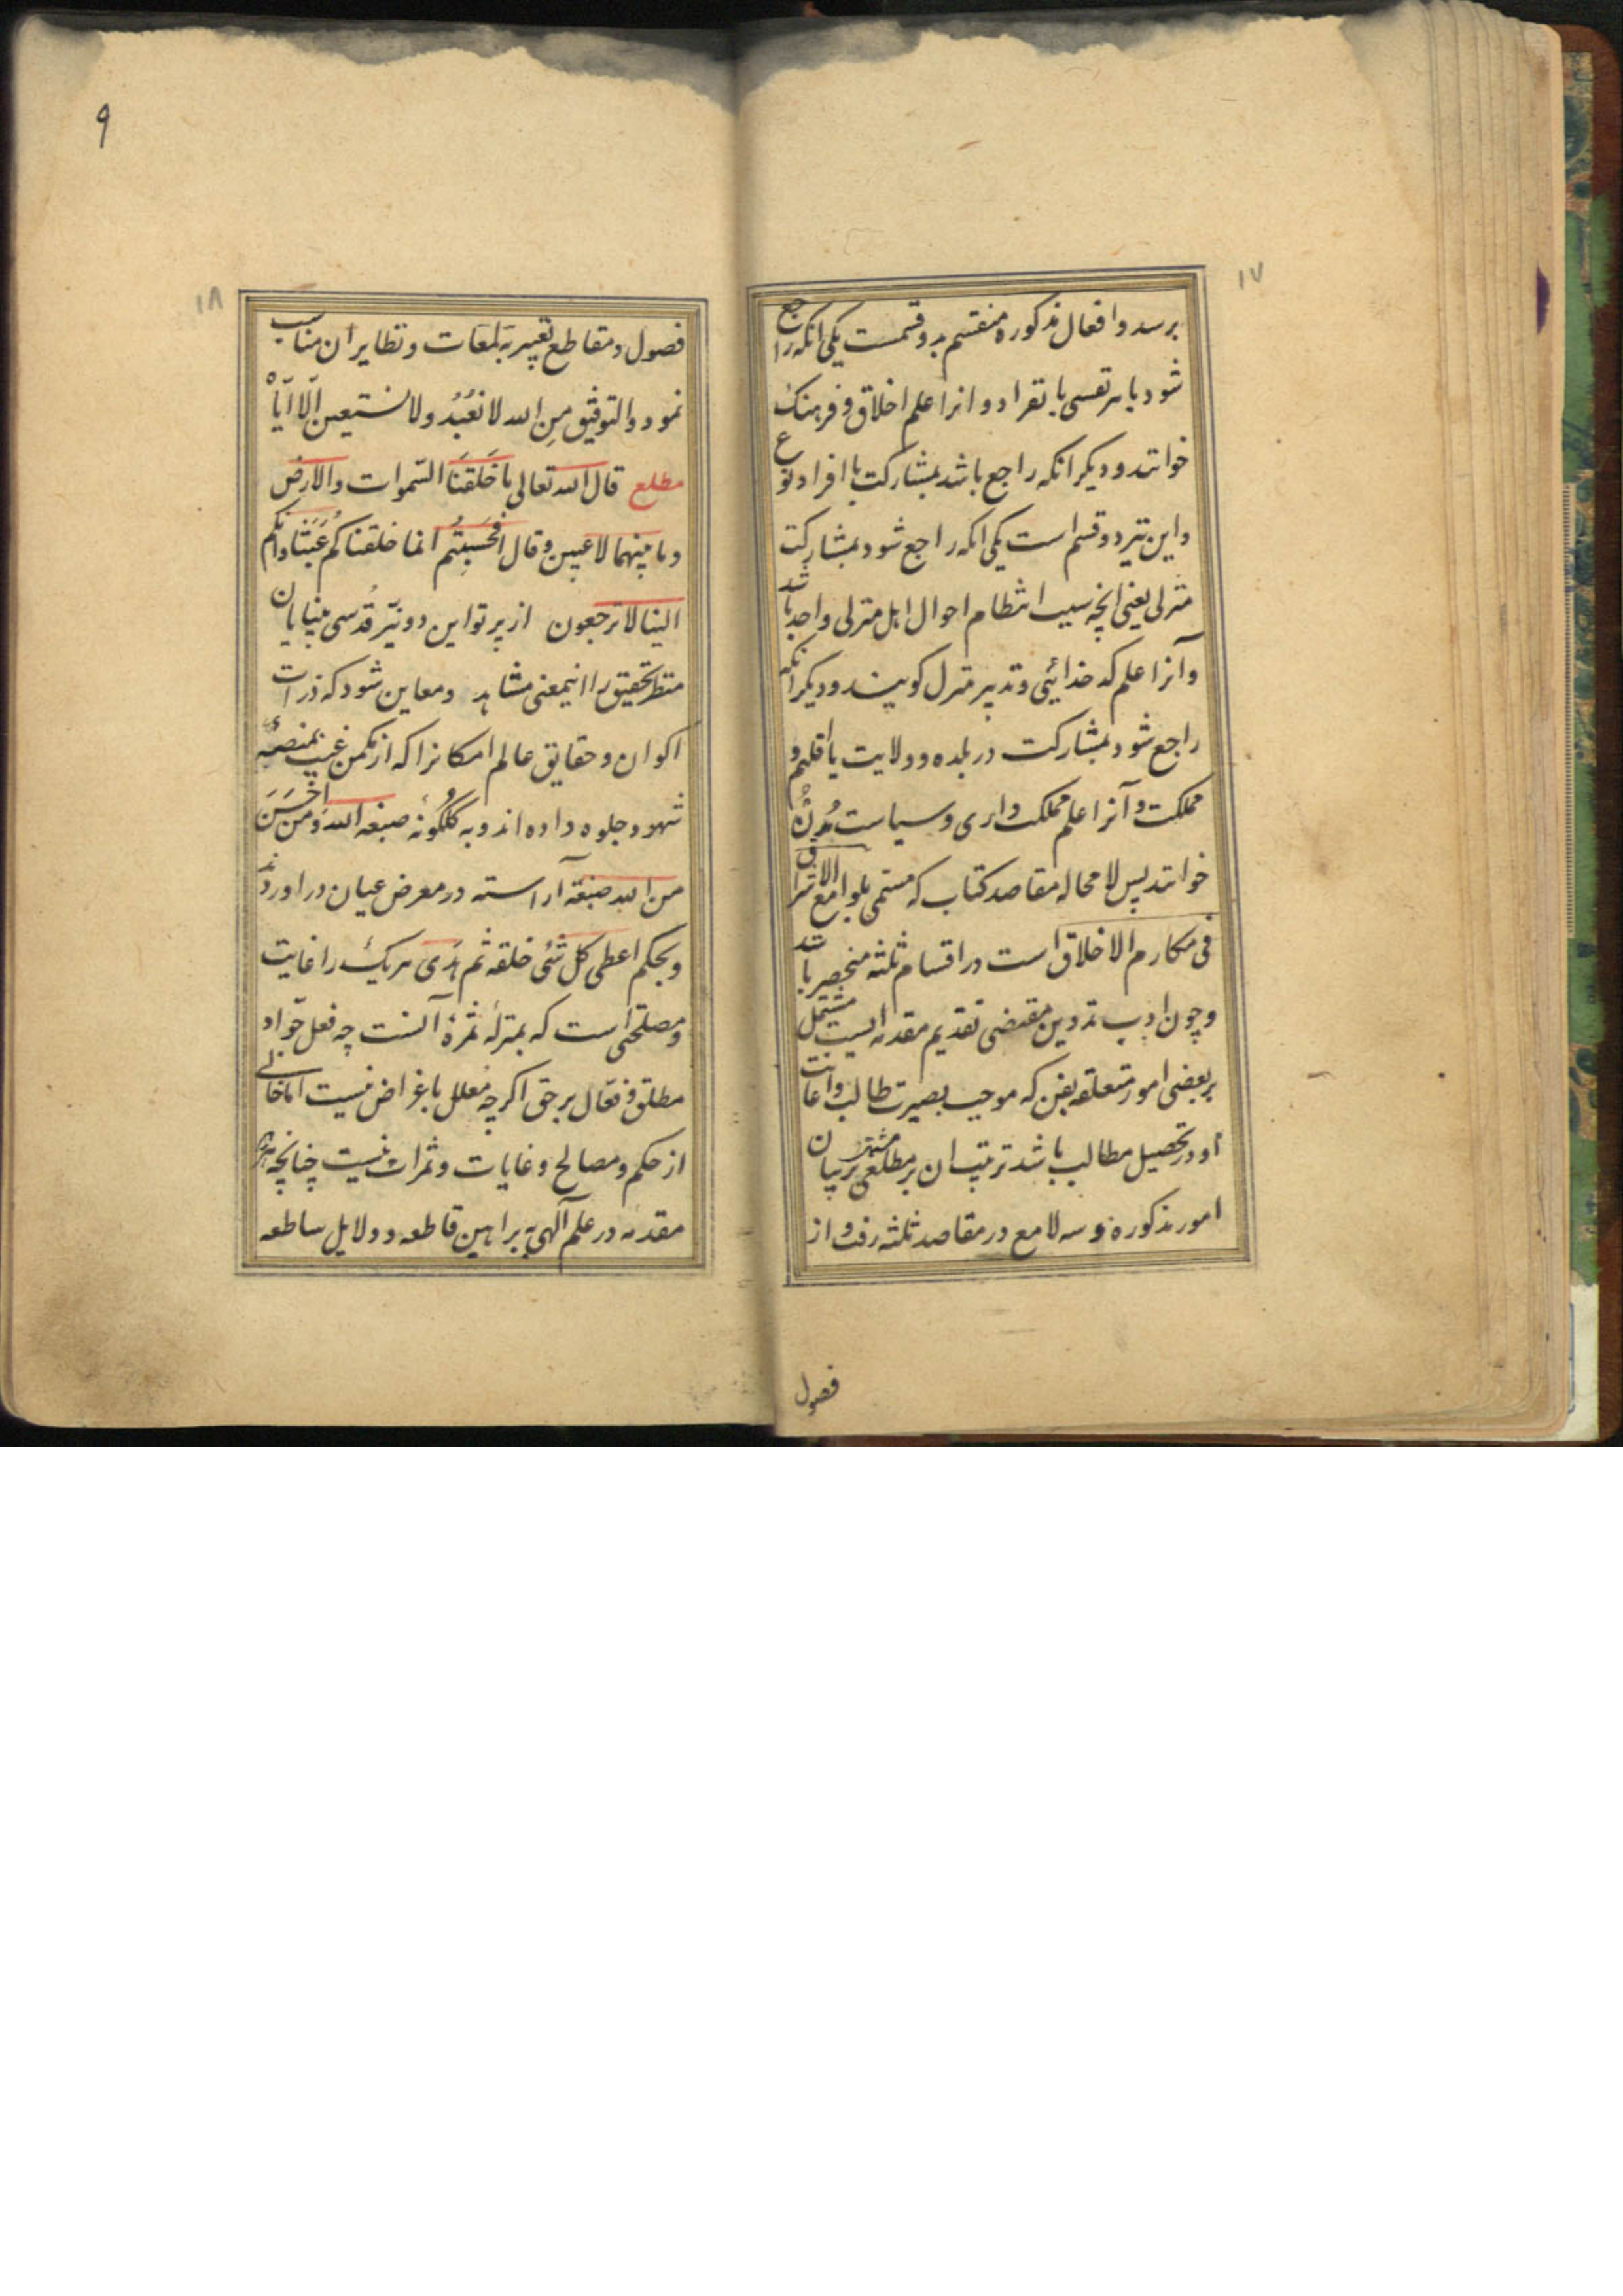 ۱۷
برسد و افعال مذکوره منقسم بدو قسمست یکی انکه راجع
شود با هر نفسی بانفراد و انرا علم اخلاق و فرهنک
خوانند و دیکر انکه راجع باشد بمشارکت با افراد نوع
و این نیز دو قسم است یکی انکه راجع شود بمشارکت
منزلی یعنی انچه سبب انتظام احوال اهل منزلی واحد باشد
و آنرا علم کدخدائیی و تدبیر منزل کویند و دیکر انکه
راجع شود بمشارکت در بلده و ولایت یا اقلیم و
مملکت و آنرا علم مملکت داری و سیاست مُدن
خوانند پس لا محاله مقاصد کتاب که مسمی بلوامع الاشراق
فی مکارم الاخلاق است در اقسام ثلثه منحصر باشد
و چون ادب تدوین مقتضی تقدیم مقدمه ایست مشتمل
بر بعضی امور متعلقه بفن که موجب بصیرت طالب و اعانت
او در تحصیل مطالب باشد ترتیب ان بر مطلعی مشتهر بر بیان
امور مذکوره و سه لامع در مقاصد ثلثه رفت و از
فصول
۹
۱۸
فصول و مقاطع تعبیر بَلمعَات و نظایر ان مناسب
نمود والتوفیق مِن الله لا نعْبُدُ ولا نستیعین اِلّا ایّاهْ
مطلع قال الله تعالی ما خَلَقنَا السّموات والارض
وما بینهما لاعبین وقال افحَسِبتُم انما خلقناکم عَبَثًا وانکم
الینا لا ترجعون از پرتو این دو نیّر قُدسی بینایان
منظر تحقیق را اینمعنی مشاهد و معاین شود که ذرات
اکوان و حقایق عالم امکانرا که از مکمن غیب بمنصهٔ
شهود جلوه داده اند و به کلکونهٔ صبغه الله وَمَن اَحْسَنَ
من الله صبغة آراسته در معرض عیان در اورده اند
و بحکم اعطی کل شئی خلقه ثم هَدَی هریک را غایت
و مصلحتی است که بمنزلهٔ ثمرهٔ آنست چه فعل جوّاد
مطلق و فعّال برحق اکرچه مُعلل باغراض نیست اما خالی
از حکم و مصالح و غایات و ثمرات نیست چنانچه این
مقدمه در علم آلهی به براهین قاطعه و دلایل ساطعه